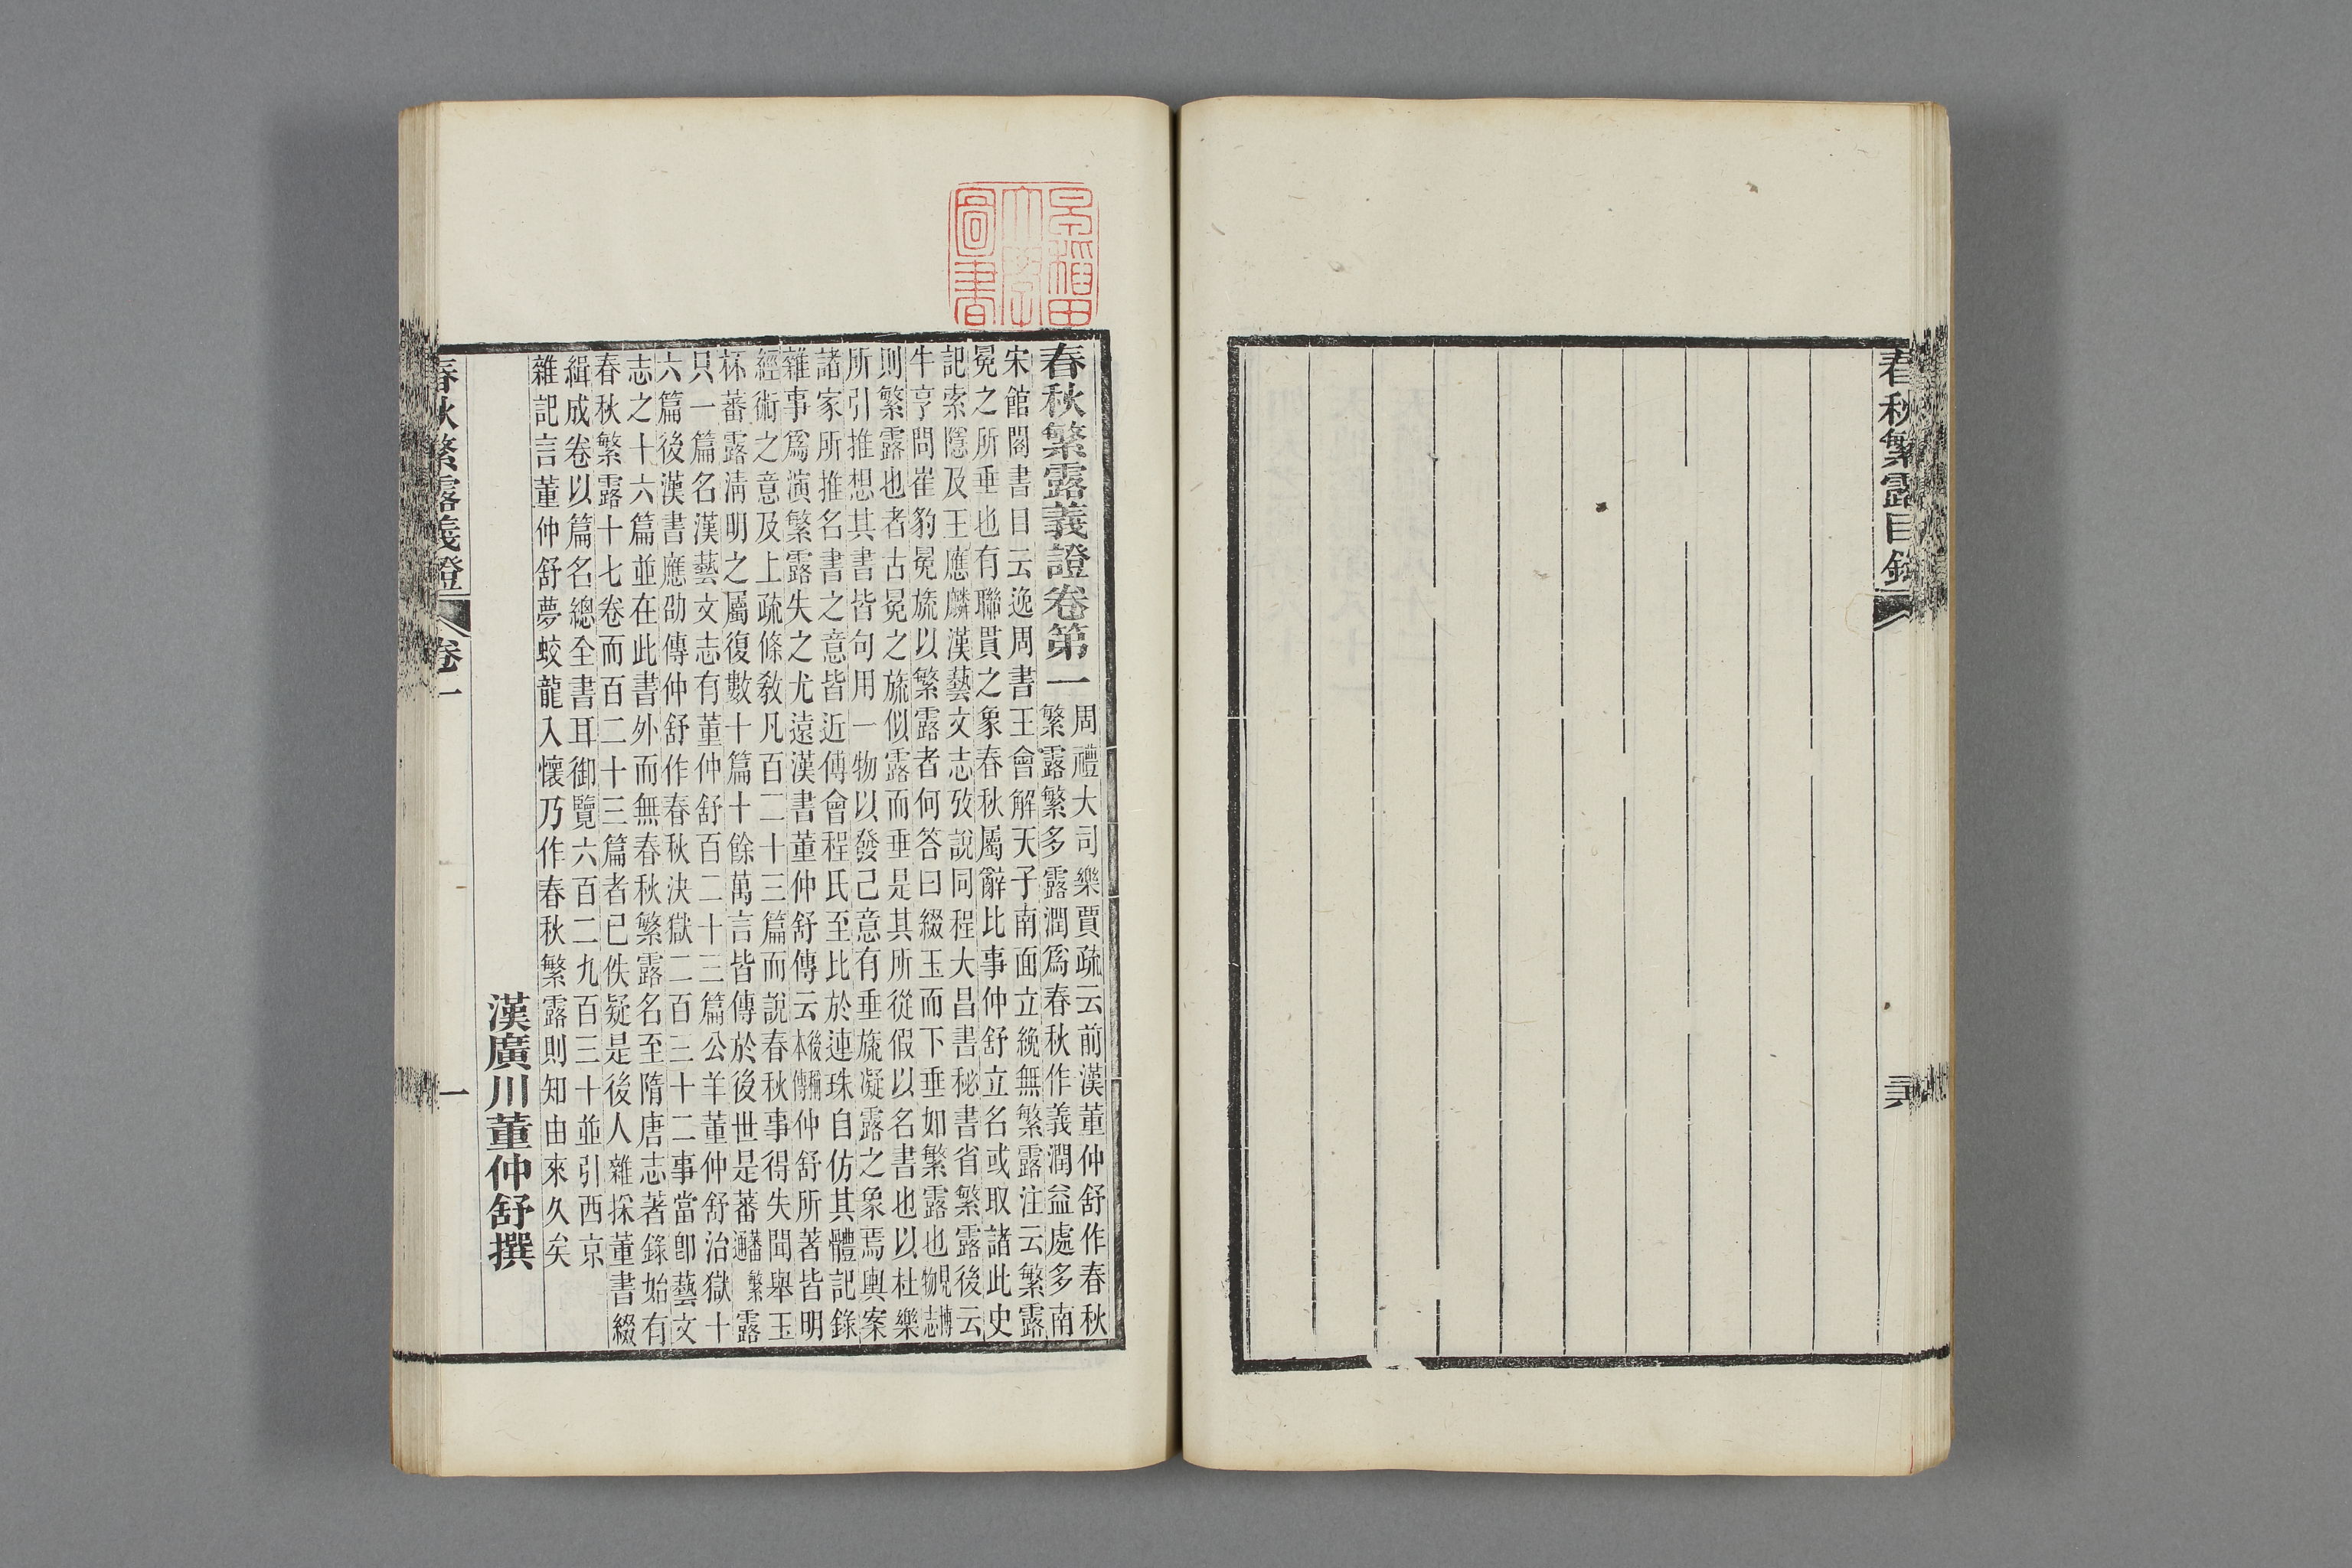 春秋繁露目錄
早稲田
大學
圖書
春秋繁露義證卷第一
周禮大司樂賈疏云前漢董仲舒作春秋
繁露繁多露潤爲春秋作義潤益處多南
宋館閣書目云逸周書王會解天子南面立絻無繁露注云繁露
冕之所垂也有聯貫之象春秋屬辭比事仲舒立名或取諸此史
記索隱及王應麟漢藝文志攷說同程大昌書秘書省繁露後云
牛亨問崔豹冕旒以繁露者何答曰綴玉而下垂如繁露也見博物志
則繁露也者古冕之旒似露而垂是其所從假以名書也以杜樂
所引推想其書皆句用一物以發己意有垂旒凝露之象焉輿案
諸家所推名書之意皆近傅會程氏至比於連珠自仿其體記錄
雜事爲演繁露失之尤遠漢書董仲舒傳云後稱本傳仲舒所著皆明
經術之意及上疏條教凡百二十三篇而說春秋事得失聞舉玉
杯蕃露清明之屬復數十篇十餘萬言皆傳於後世是蕃蕃通繁露
只一篇名漢藝文志有董仲舒百二十三篇公羊董仲舒治獄十
六篇後漢書應劭傳仲舒作春秋決獄二百三十二事當卽藝文
志之十六篇並在此書外而無春秋繁露名至隋唐志著錄始有
春秋繁露十七卷而百二十三篇者已佚疑是後人雜採董書綴
緝成卷以篇名總全書耳御覽六百二九百三十並引西京
雜記言董仲舒夢蛟龍入懷乃作春秋繁露則知由來久矣
漢廣川董仲舒撰
春秋繁露義證
卷一
一